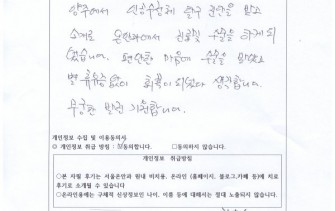 소개로 온안과에서 진료및 수술을 하게 되
었습니다. 편안한 마음에 수술을 받았고
별 휴유증 없이 회복이 되었다 생각합니다.
무궁한 발전 기원합니다.
개인정보 수집 및 이용동의서
◎ 개인정보 취급 방침 : 동의합니다. □동의하지 않습니다.
개인정보 취급방침
○본 자필 후기는 서울온안과 원내 비치용, 온라인 (홈페이지, 블로그,카페 등)에 치료
후기로 소개될 수 있습니다
○온라인용에는 구체적 신상정보인 나이, 이름 등에 대해서는 절대 노출되지 않습니다.